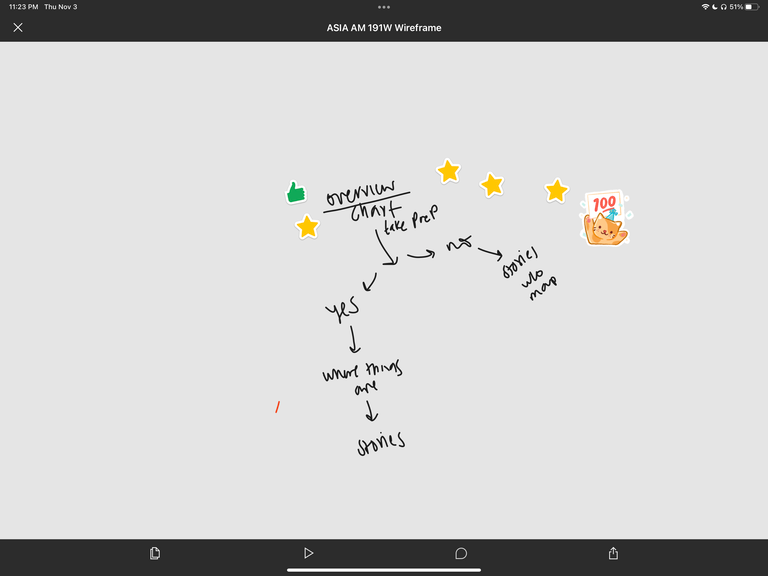 11:23 PM Thu Nov 3
51%
ASIA AM 191W Wireframe
overview
chart
take PreP
100
no
stories
w/o
map
yes
where things
are
stories